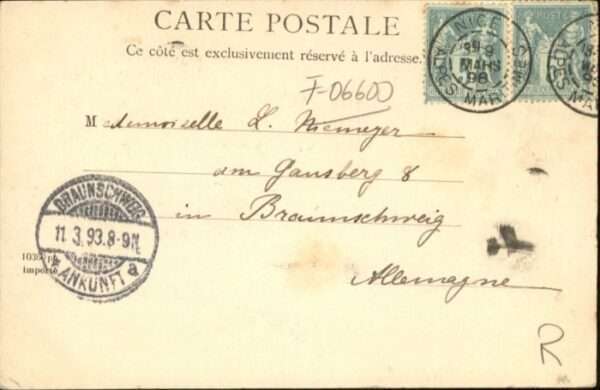 CARTE POSTALE
Ce côté est exclusivement réservé à l'adresse.
NICE
MARS
98
ALPES MARMES
POSTE
F-06600
Mademoiselle L. Niemeyer
am Gausberg 8
in Braunschweig
Allemagne
BRAUNSCHWEIG
11.3.93.8-9N.
* ANKUNFT a
R